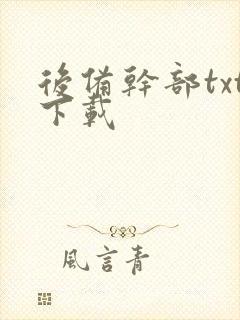 後備幹部txt
下載
風言青